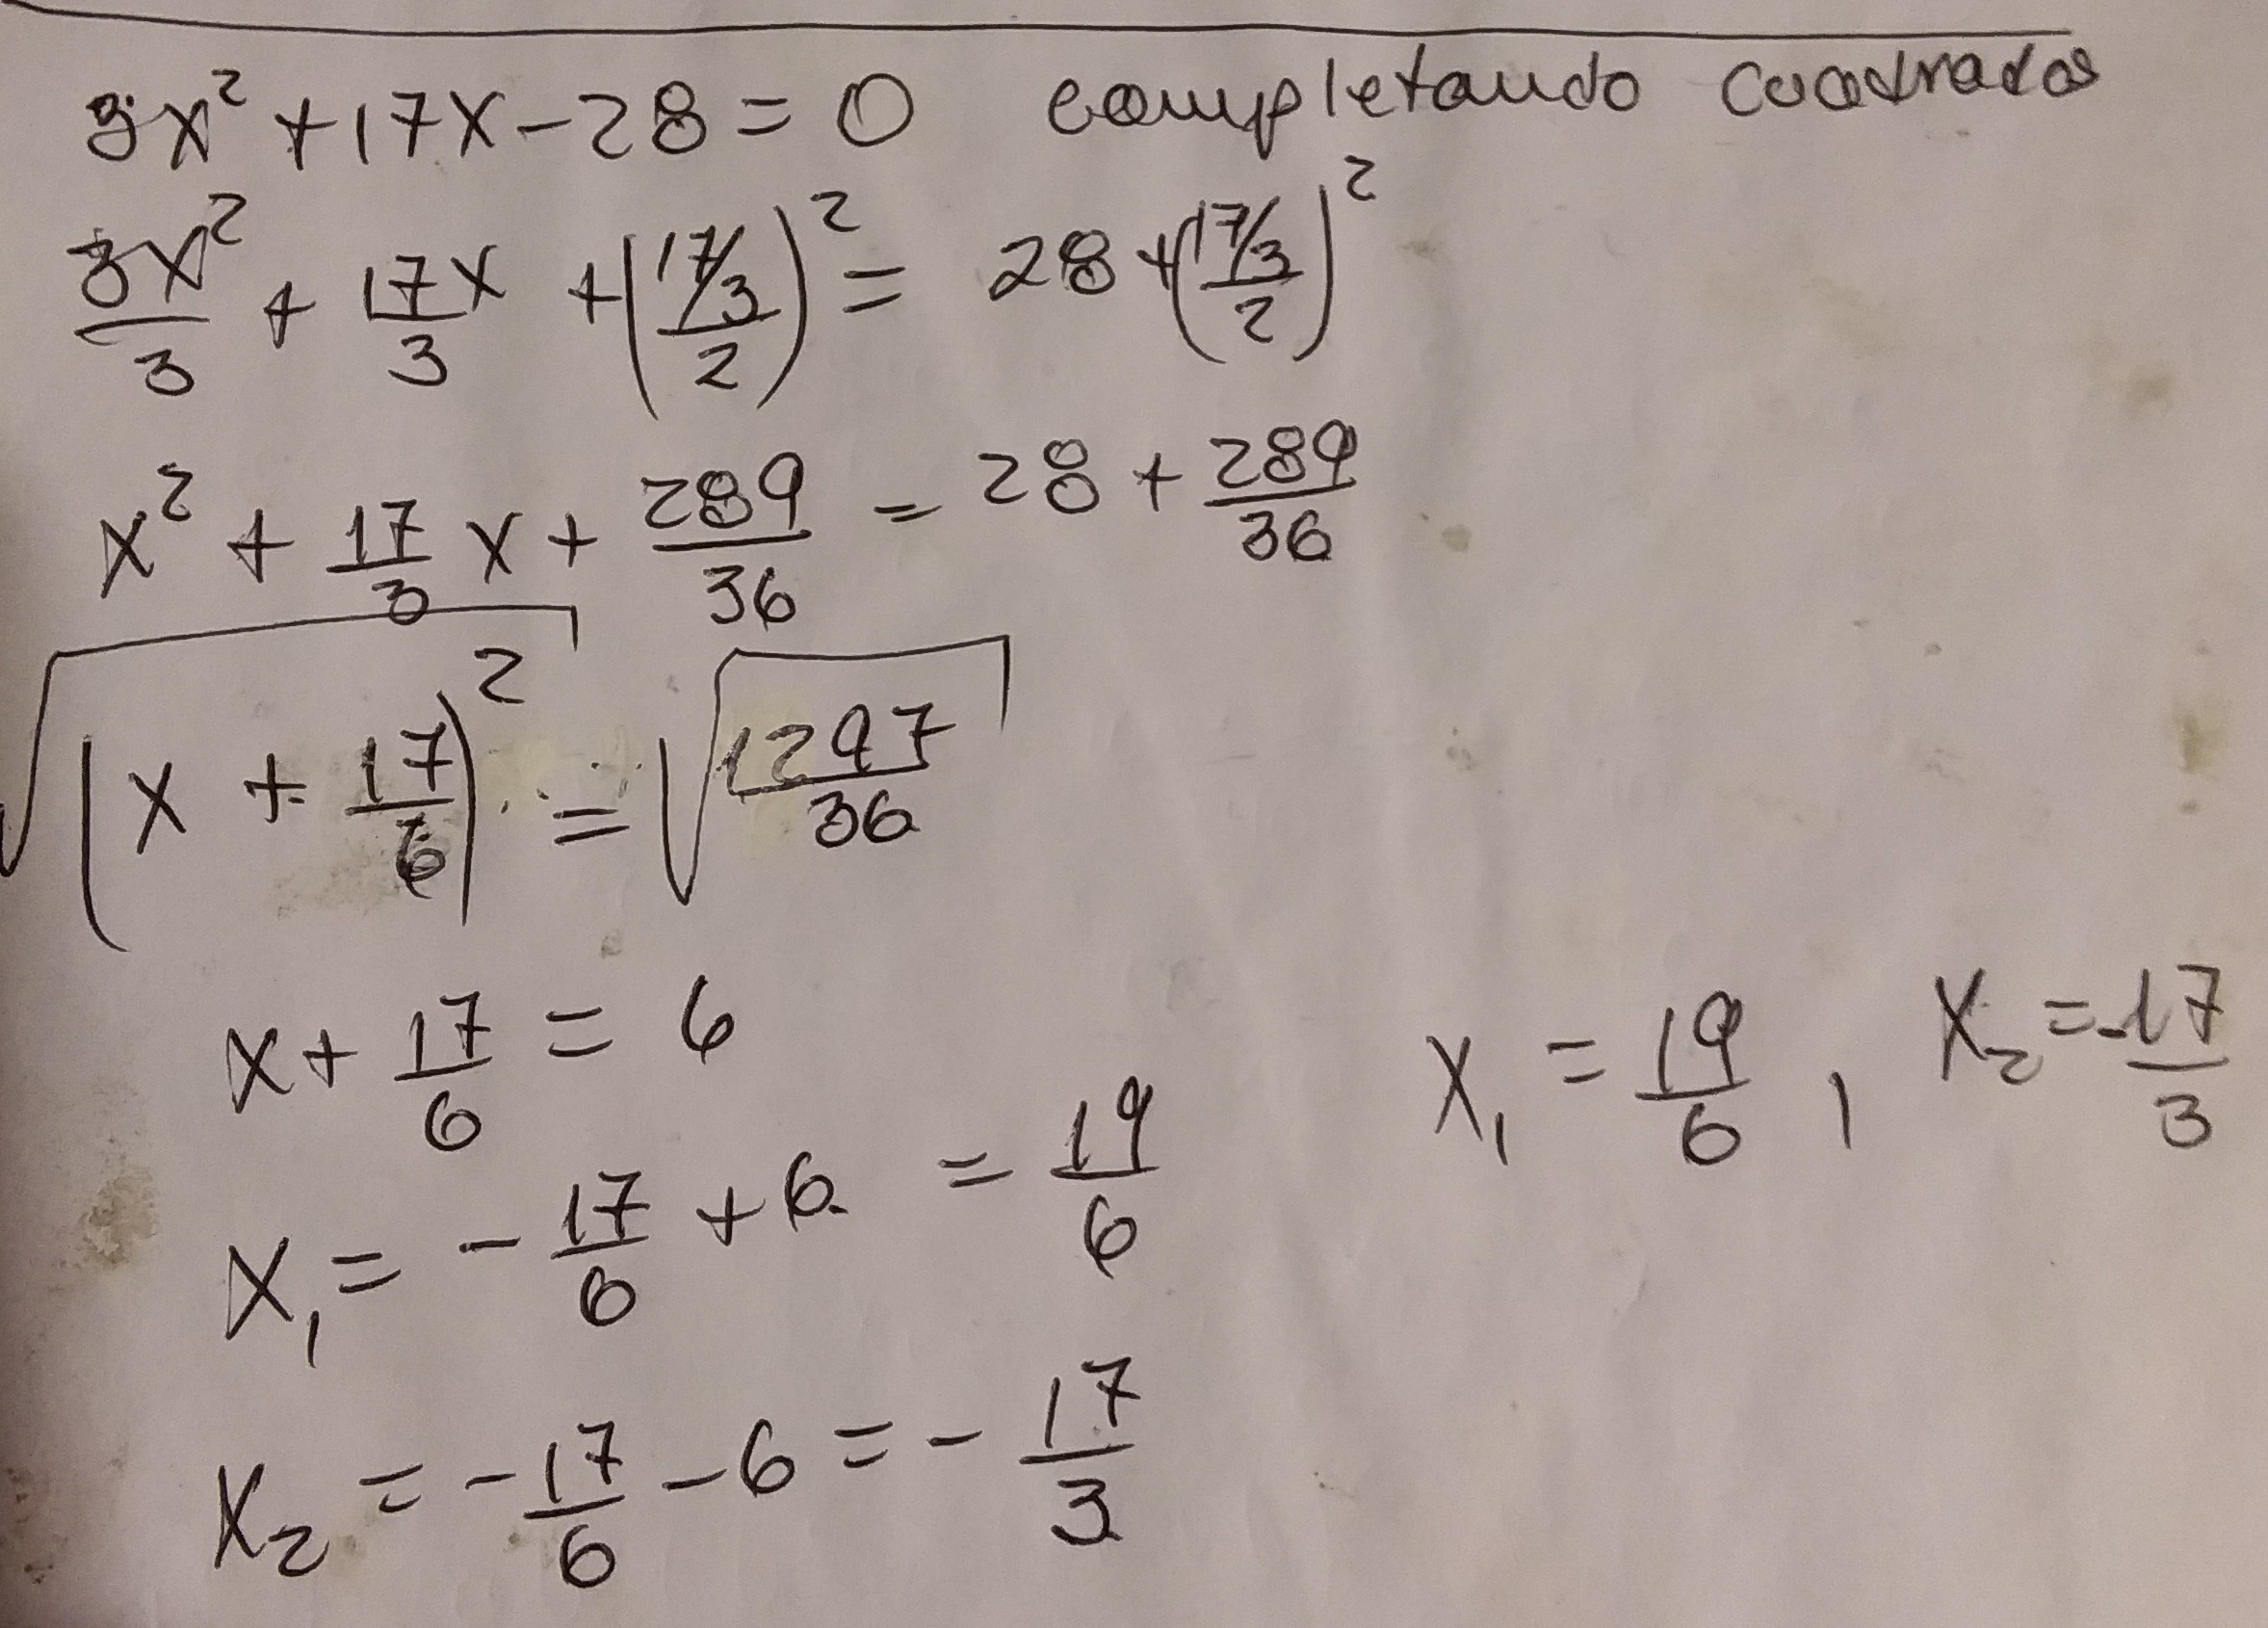 3x² + 17x - 28 = 0 completando cuadrados
3x²/3 + 17x/3 + ((17/3)/2)² = 28 + ((17/3)/2)²
x² + 17/3 x + 289/36 = 28 + 289/36
√(x + 17/6)² = √1297/36
x + 17/6 = 6
x₁ = - 17/6 + 6 = 19/6
x₁ = 19/6 , x₂ = -17/3
x₂ = - 17/6 - 6 = - 17/3